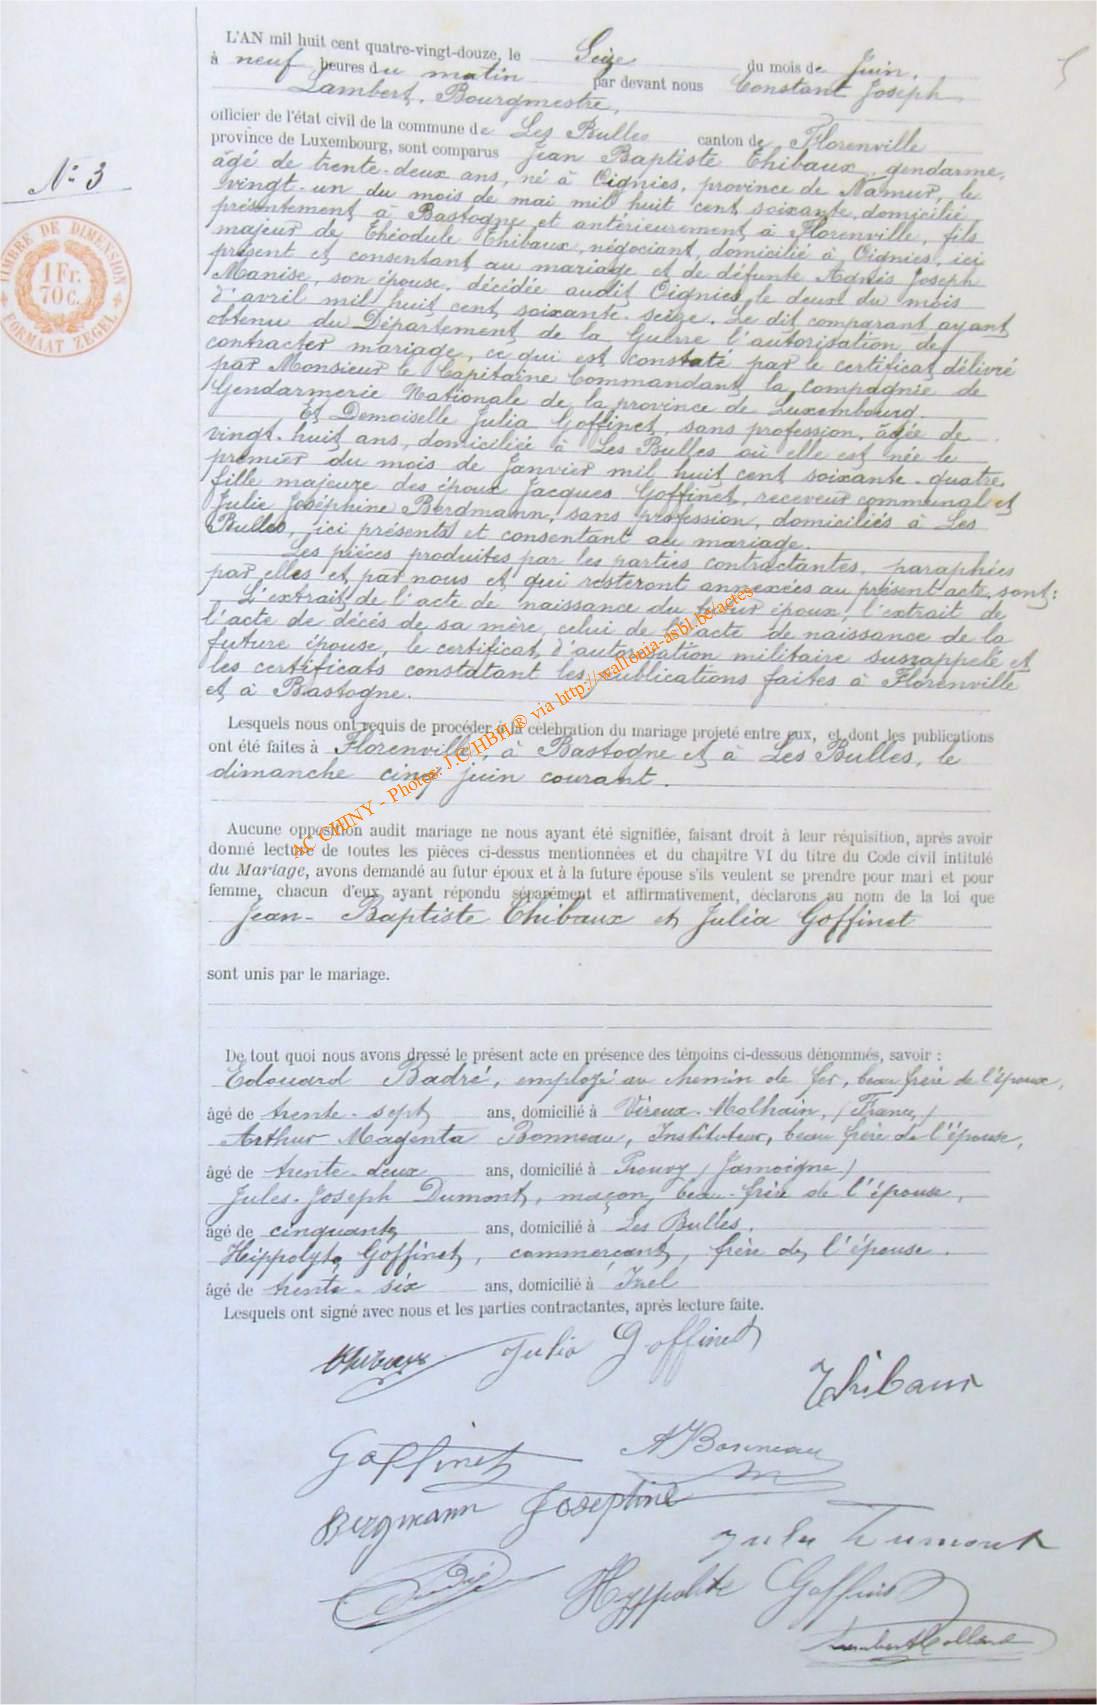 L'AN mil huit cent quatre-vingt-douze, le Seize du mois de Juin,
à neuf heures du matin par devant nous Constant Joseph
Lambert, Bourgmestre,
officier de l'état civil de la commune de Les Bulles canton de Florenville
province de Luxembourg, sont comparus Jean Baptiste Thibaux, gendarme,
N° 3
âgé de trente-deux ans, né à Oignies, province de Namur, le
vingt-un du mois de mai mil huit cent soixante, domicilié
présentement à Bastogne et antérieurement à Florenville, fils
majeur de Théodule Thibaux, négociant, domicilié à Oignies, ici
présent et consentant au mariage et de défunte Agnès Joseph
Manise, son épouse, décédée audit Oignies, le deux du mois
d'avril mil huit cent soixante-seize. Le dit comparant ayant
obtenu du Département de la Guerre l'autorisation de
contracter mariage, ce qui est constaté par le certificat délivré
par Monsieur le Capitaine Commandant la compagnie de
Gendarmerie Nationale de la province de Luxembourg.
TIMBRE DE DIMENSION
1 Fr.
70 c.
FORMAAT ZEGEL
Et Demoiselle Julia Goffinet, sans profession, âgée de
vingt-huit ans, domiciliée à Les Bulles où elle est née le
premier du mois de Janvier mil huit cent soixante-quatre,
fille majeure des époux Jacques Goffinet, receveur communal et
Julie Joséphine Bergmann, sans profession, domiciliés à Les
Bulles, ici présents et consentant au mariage.
Les pièces produites par les parties contractantes, paraphées
par elles et par nous et qui resteront annexées au présent acte, sont:
L'extrait de l'acte de naissance du futur époux, l'extrait de
l'acte de décès de sa mère, celui de l'acte de naissance de la
future épouse, le certificat d'autorisation militaire susrappelé et
les certificats constatant les publications faites à Florenville
et à Bastogne.
Lesquels nous ont requis de procéder à la célébration du mariage projeté entre eux, et dont les publications
ont été faites à Florenville, à Bastogne et à Les Bulles, le
dimanche cinq juin courant.
AC CHINY - Photos: J.C HBH ® via http://wallonia-asbl.be/actes
Aucune opposition audit mariage ne nous ayant été signifiée, faisant droit à leur réquisition, après avoir
donné lecture de toutes les pièces ci-dessus mentionnées et du chapitre VI du titre du Code civil intitulé
du Mariage, avons demandé au futur époux et à la future épouse s'ils veulent se prendre pour mari et pour
femme, chacun d'eux ayant répondu séparément et affirmativement, déclarons au nom de la loi que
Jean-Baptiste Thibaux et Julia Goffinet
sont unis par le mariage.
De tout quoi nous avons dressé le présent acte en présence des témoins ci-dessous dénommés, savoir :
Edouard Badré, employé au chemin de fer, beau frère de l'époux,
âgé de trente-sept ans, domicilié à Vireux-Molhain, (France)
Arthur Magenta Bonneau, Instituteur, beau frère de l'épouse,
âgé de trente-deux ans, domicilié à Prouvy (Jamoigne)
Jules-Joseph Dumont, maçon, beau-frère de l'épouse,
âgé de cinquante ans, domicilié à Les Bulles.
Heippolyte Goffinet, commerçant, frère de l'épouse.
âgé de trente-six ans, domicilié à Izel
Lesquels ont signé avec nous et les parties contractantes, après lecture faite.
Thibaux Julia Goffinet
Thibaux
Goffinet A Bonneau
Bergmann Josephine
Jules Dumont
Badré Hyppolite Goffinet